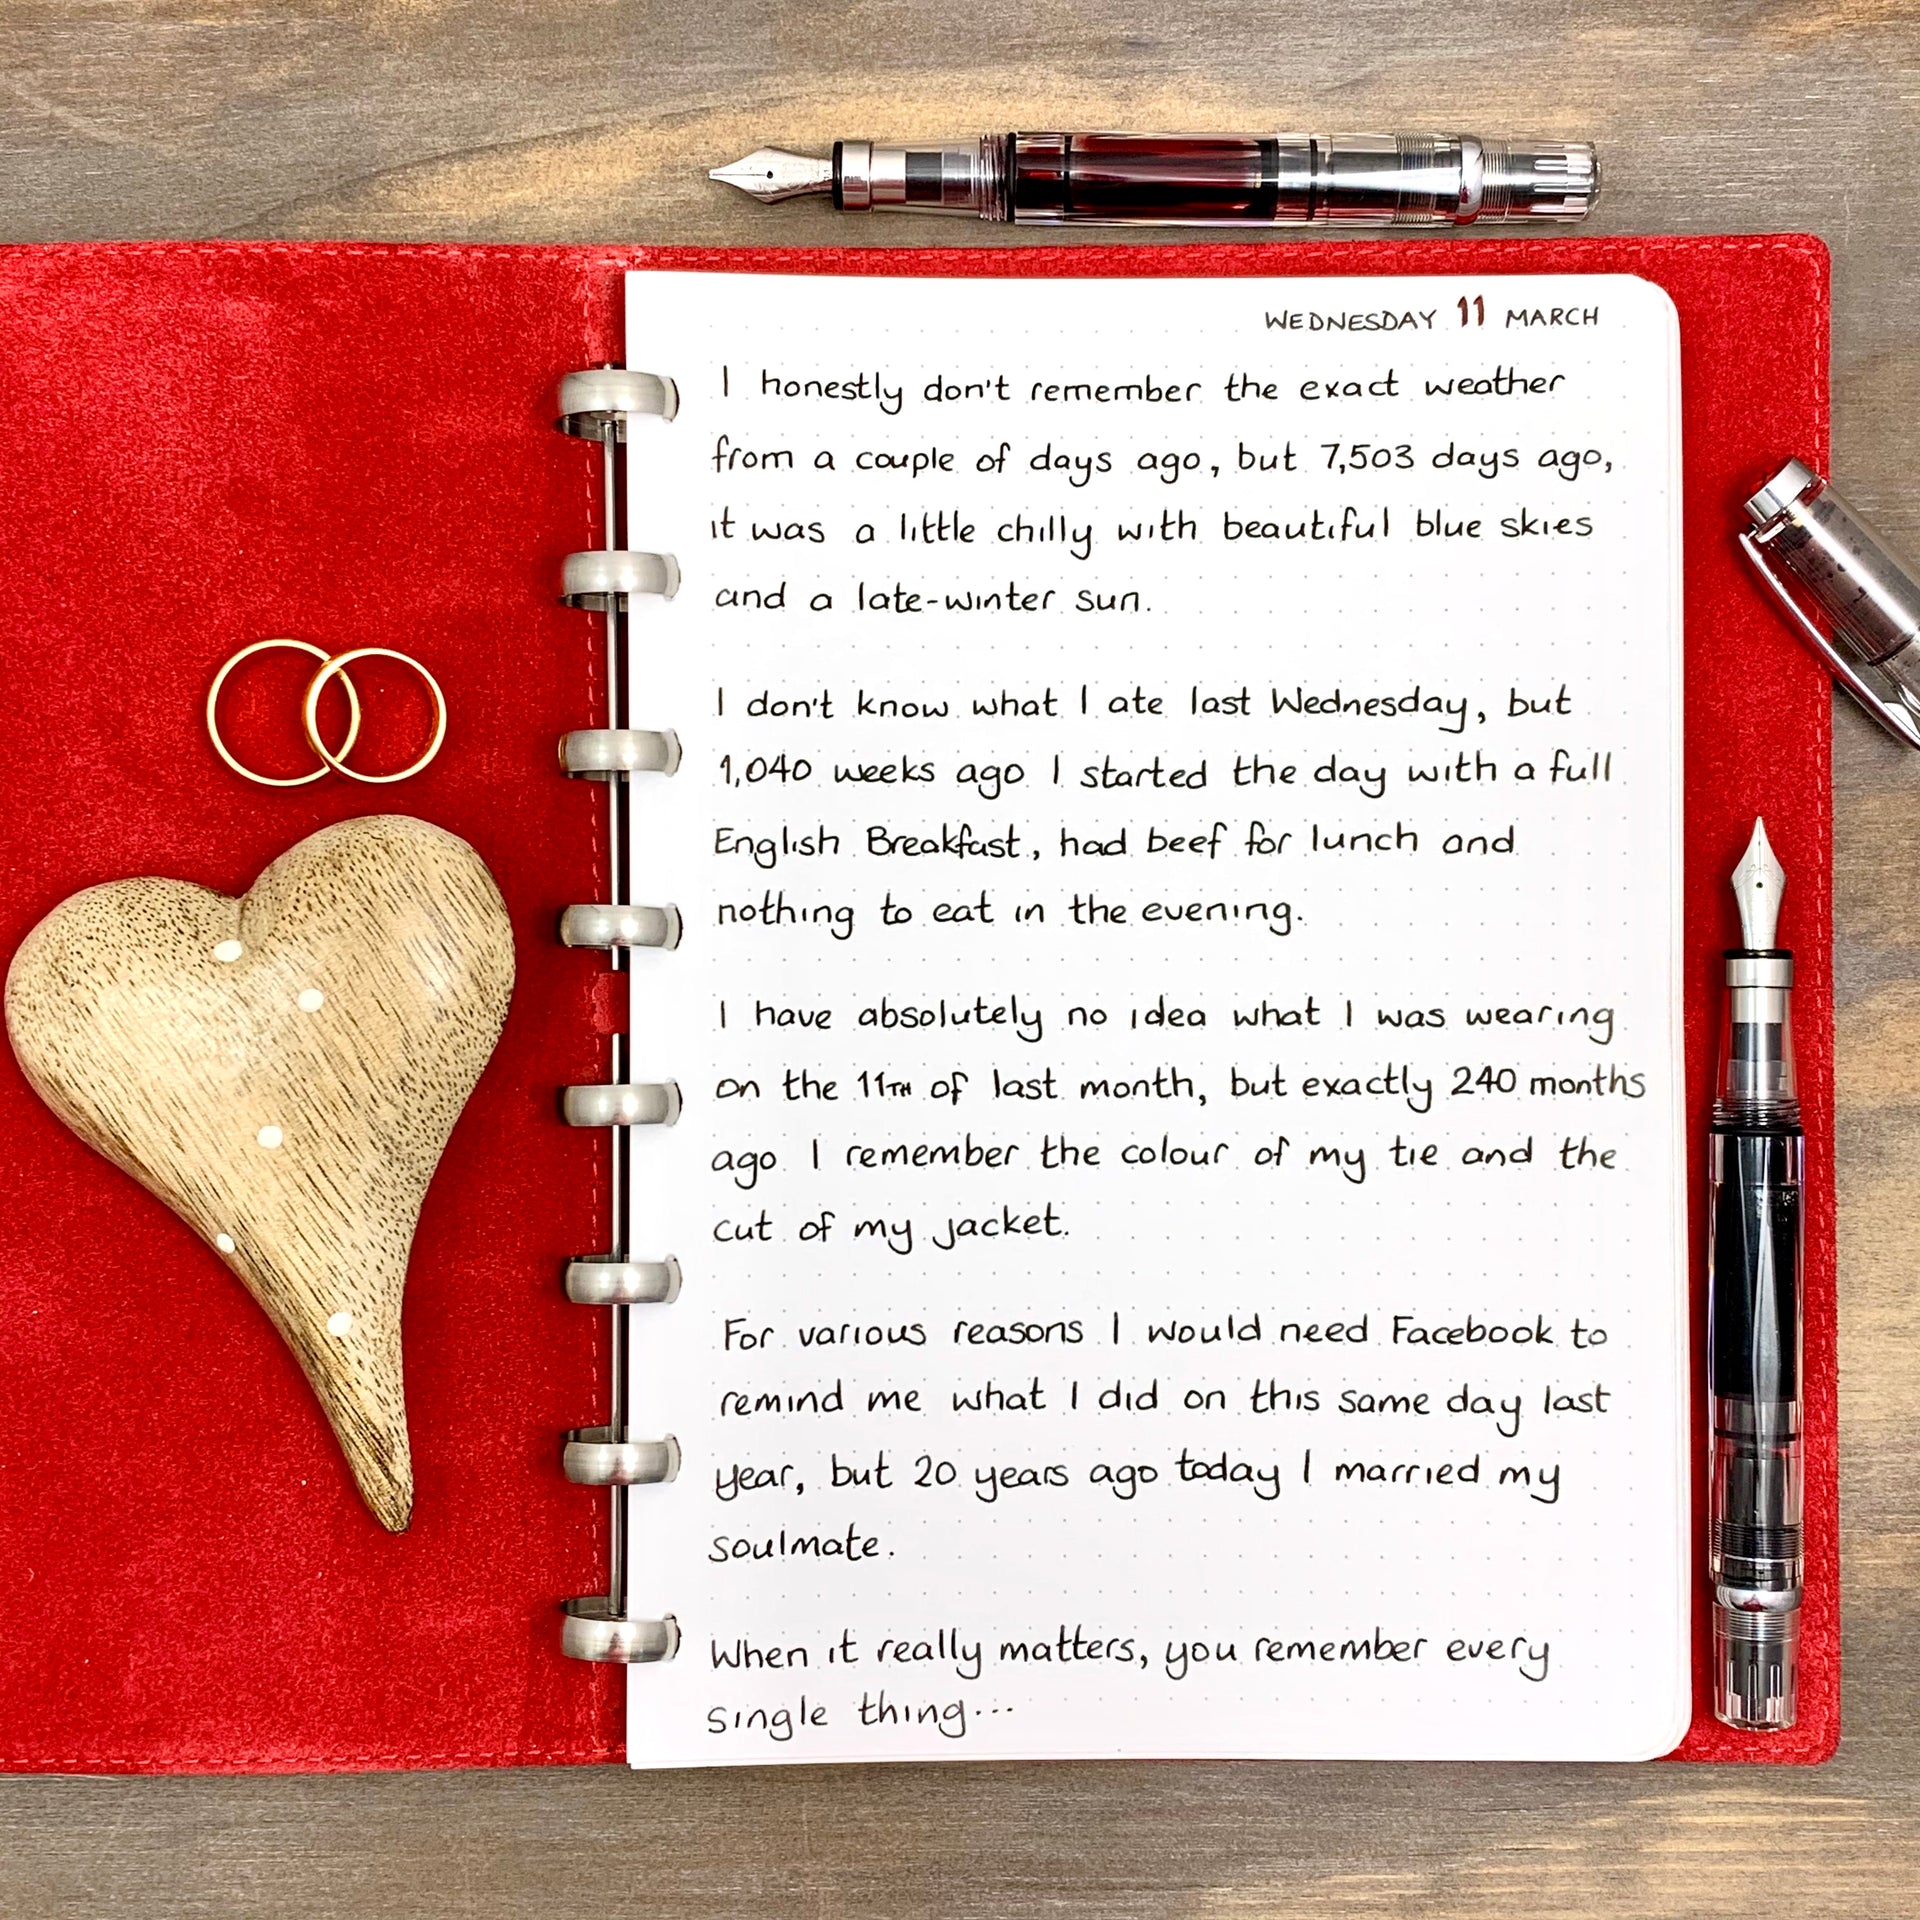 WEDNESDAY 11 MARCH
I honestly don't remember the exact weather
from a couple of days ago, but 7,503 days ago,
it was a little chilly with beautiful blue skies
and a late-winter sun.
I don't know what I ate last Wednesday, but
1,040 weeks ago I started the day with a full
English Breakfast, had beef for lunch and
nothing to eat in the evening.
I have absolutely no idea what I was wearing
on the 11TH of last month, but exactly 240 months
ago I remember the colour of my tie and the
cut of my jacket.
For various reasons I would need Facebook to
remind me what I did on this same day last
year, but 20 years ago today I married my
soulmate.
When it really matters, you remember every
single thing...